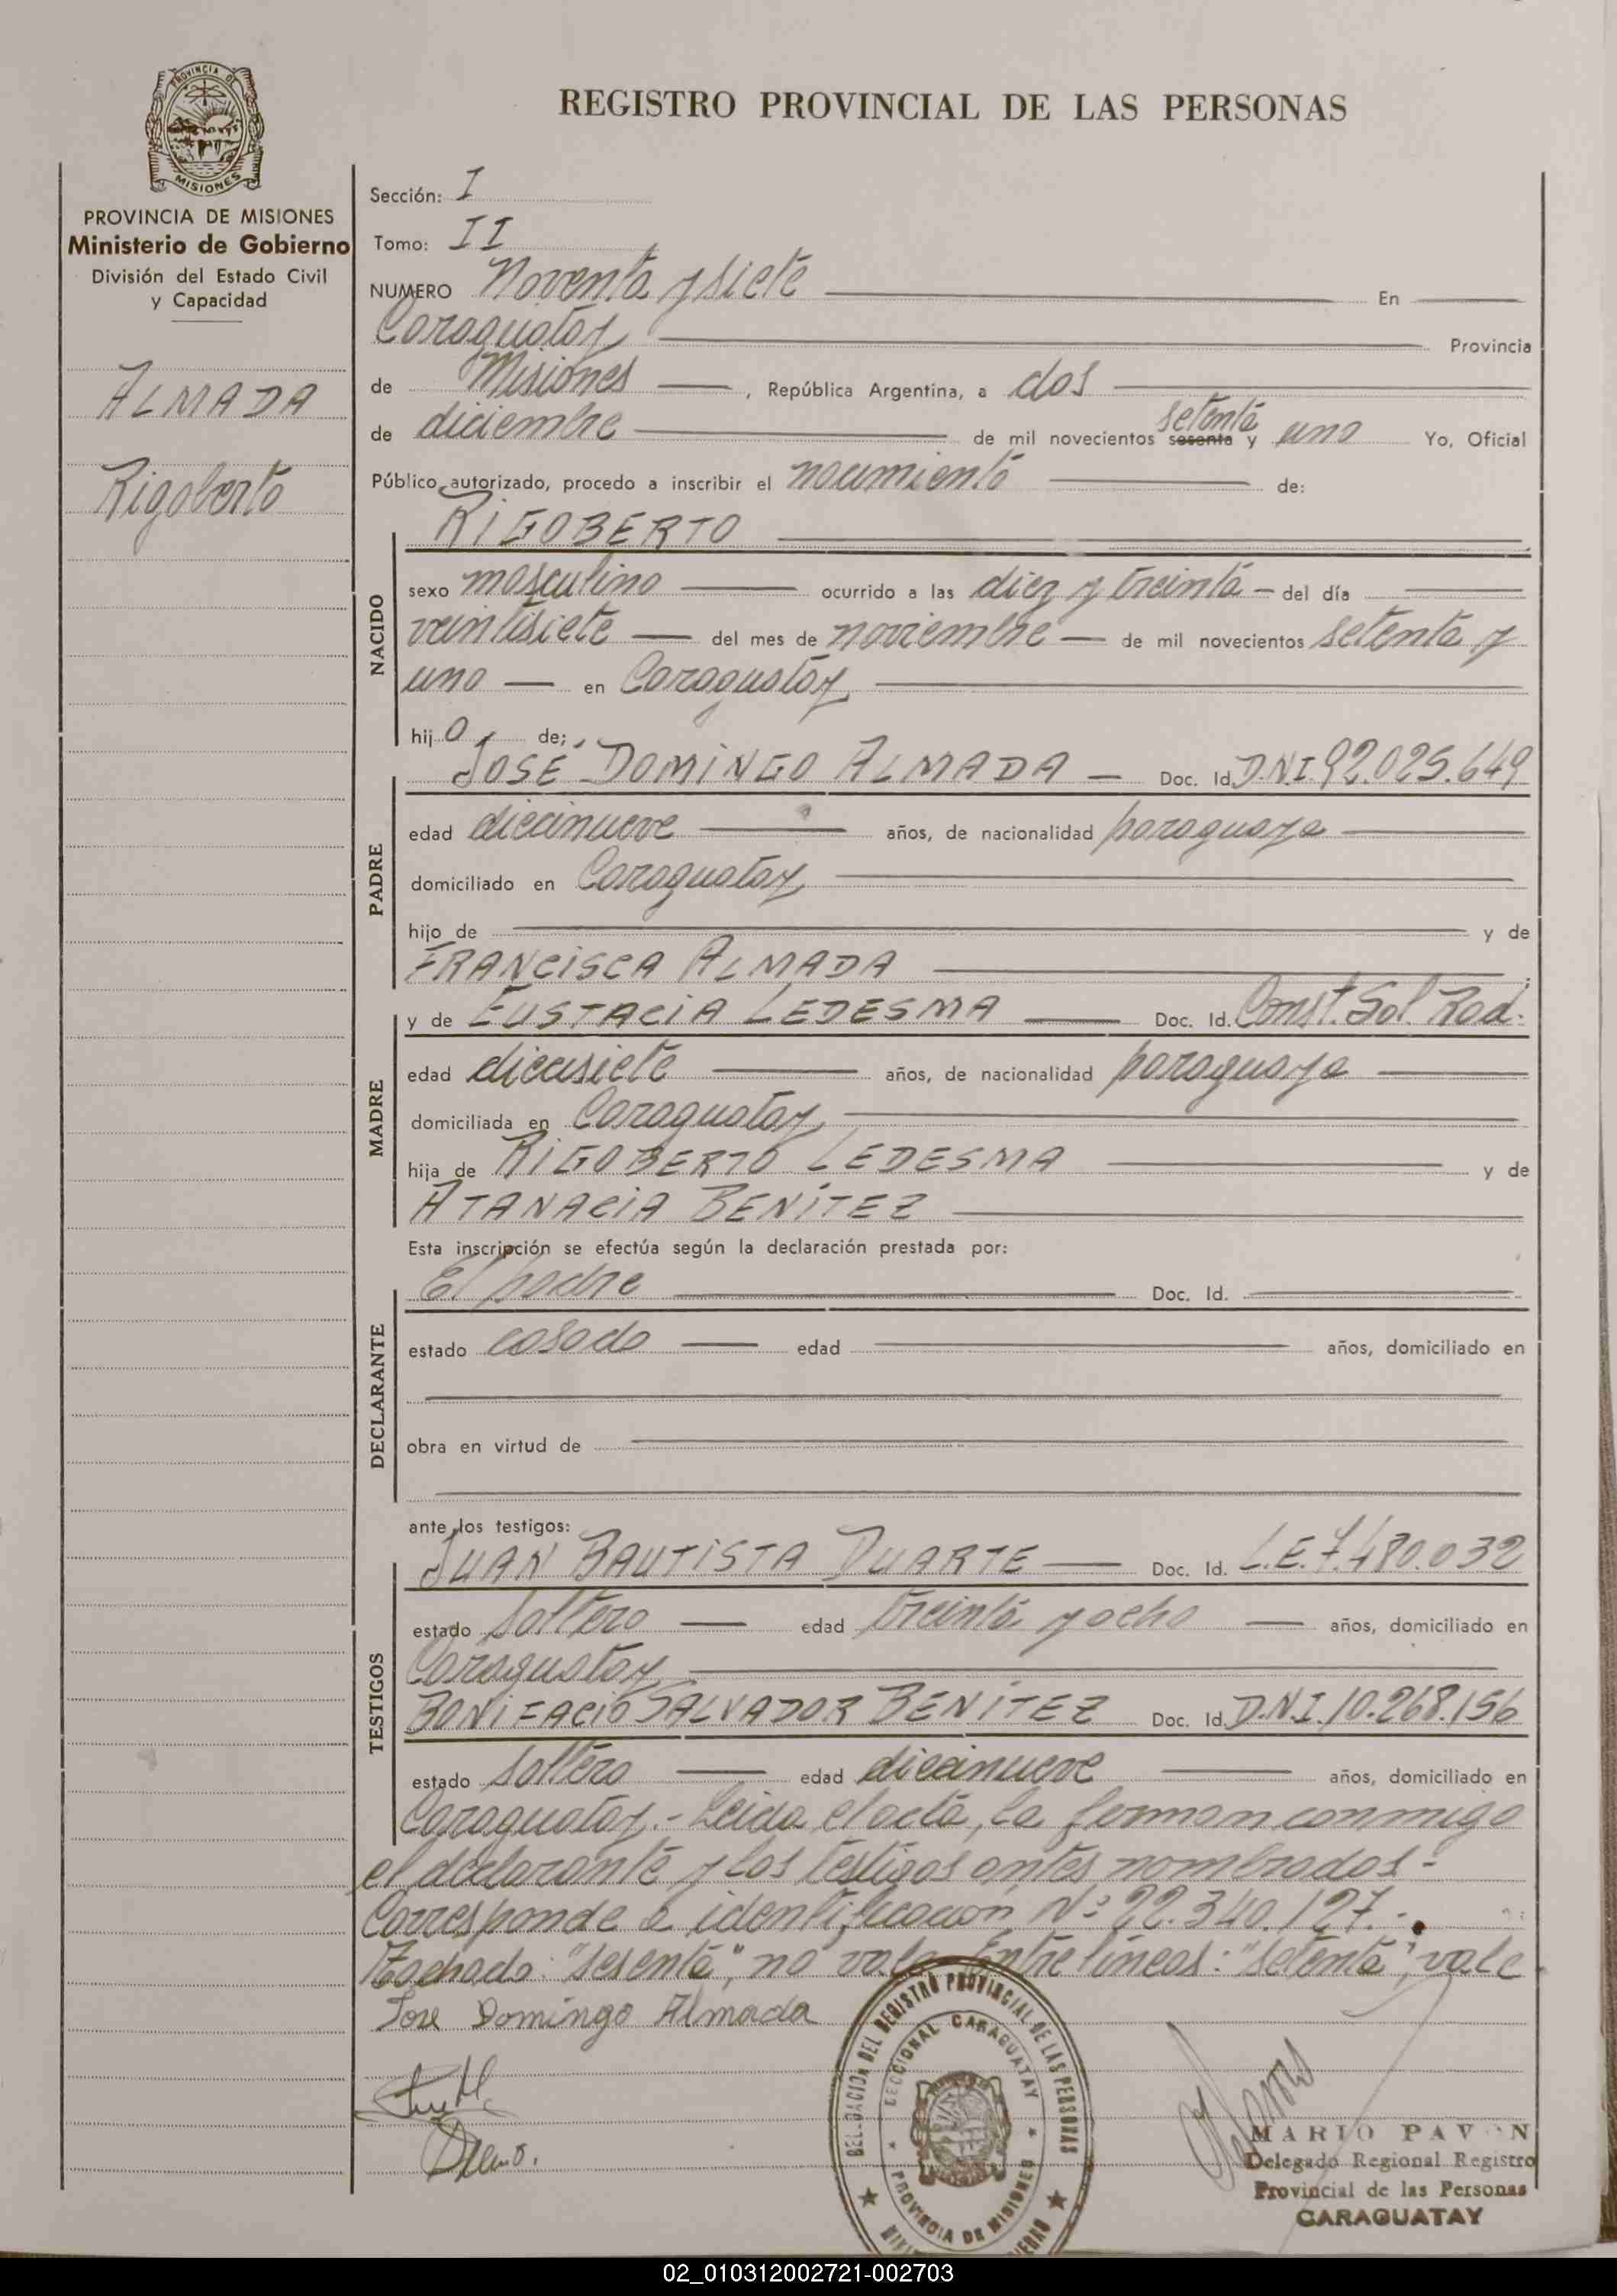 PROVINCIA DE
MISIONES
REGISTRO PROVINCIAL DE LAS PERSONAS
PROVINCIA DE MISIONES
Ministerio de Gobierno
División del Estado Civil
y Capacidad
ALMADA
Rigoberto
Sección: I
Tomo: II
NUMERO Noventa y siete En
Caraguatay Provincia
de Misiones , República Argentina, a dos
de diciembre de mil novecientos sesenta setenta y uno Yo, Oficial
Público autorizado, procedo a inscribir el nacimiento de:
RIGOBERTO
NACIDO
sexo masculino ocurrido a las diez y treinta del día
veintisiete del mes de noviembre de mil novecientos setenta y
uno en Caraguatay
hijo de;
PADRE
JOSÉ DOMINGO ALMADA Doc. Id. D.N.I. 92.025.649
edad diecinueve años, de nacionalidad paraguaya
domiciliado en Caraguatay
hijo de y de
FRANCISCA ALMADA
MADRE
y de EUSTACIA LEDESMA Doc. Id. Const. Sol. Rad.
edad diecisiete años, de nacionalidad paraguaya
domiciliada en Caraguatay
hija de RIGOBERTO LEDESMA y de
ATANACIA BENÍTEZ
Esta inscripción se efectúa según la declaración prestada por:
DECLARANTE
El padre Doc. Id.
estado casado edad años, domiciliado en
obra en virtud de
ante los testigos:
TESTIGOS
JUAN BAUTISTA DUARTE Doc. Id. L.E. 7.480.032
estado soltero edad treinta y ocho años, domiciliado en
Caraguatay
BONIFACIO SALVADOR BENÍTEZ Doc. Id. D.N.I. 10.268.156
estado soltero edad diecinueve años, domiciliado en
Caraguatay.- Leida el acta, la firman conmigo
el declarante y los testigos antes nombrados.-
Corresponde a identificación Nº 22.340.127.-
Tachado: "sesenta", no vale. Entre líneas: "setenta", vale
Jose Domingo Almada
DELEGACION DEL REGISTRO PROVINCIAL DE LAS PERSONAS
SECCIONAL CARAGUATAY
PROVINCIA DE MISIONES
MARIO PAVON
Delegado Regional Registro
Provincial de las Personas
CARAGUATAY
02_010312002721-002703